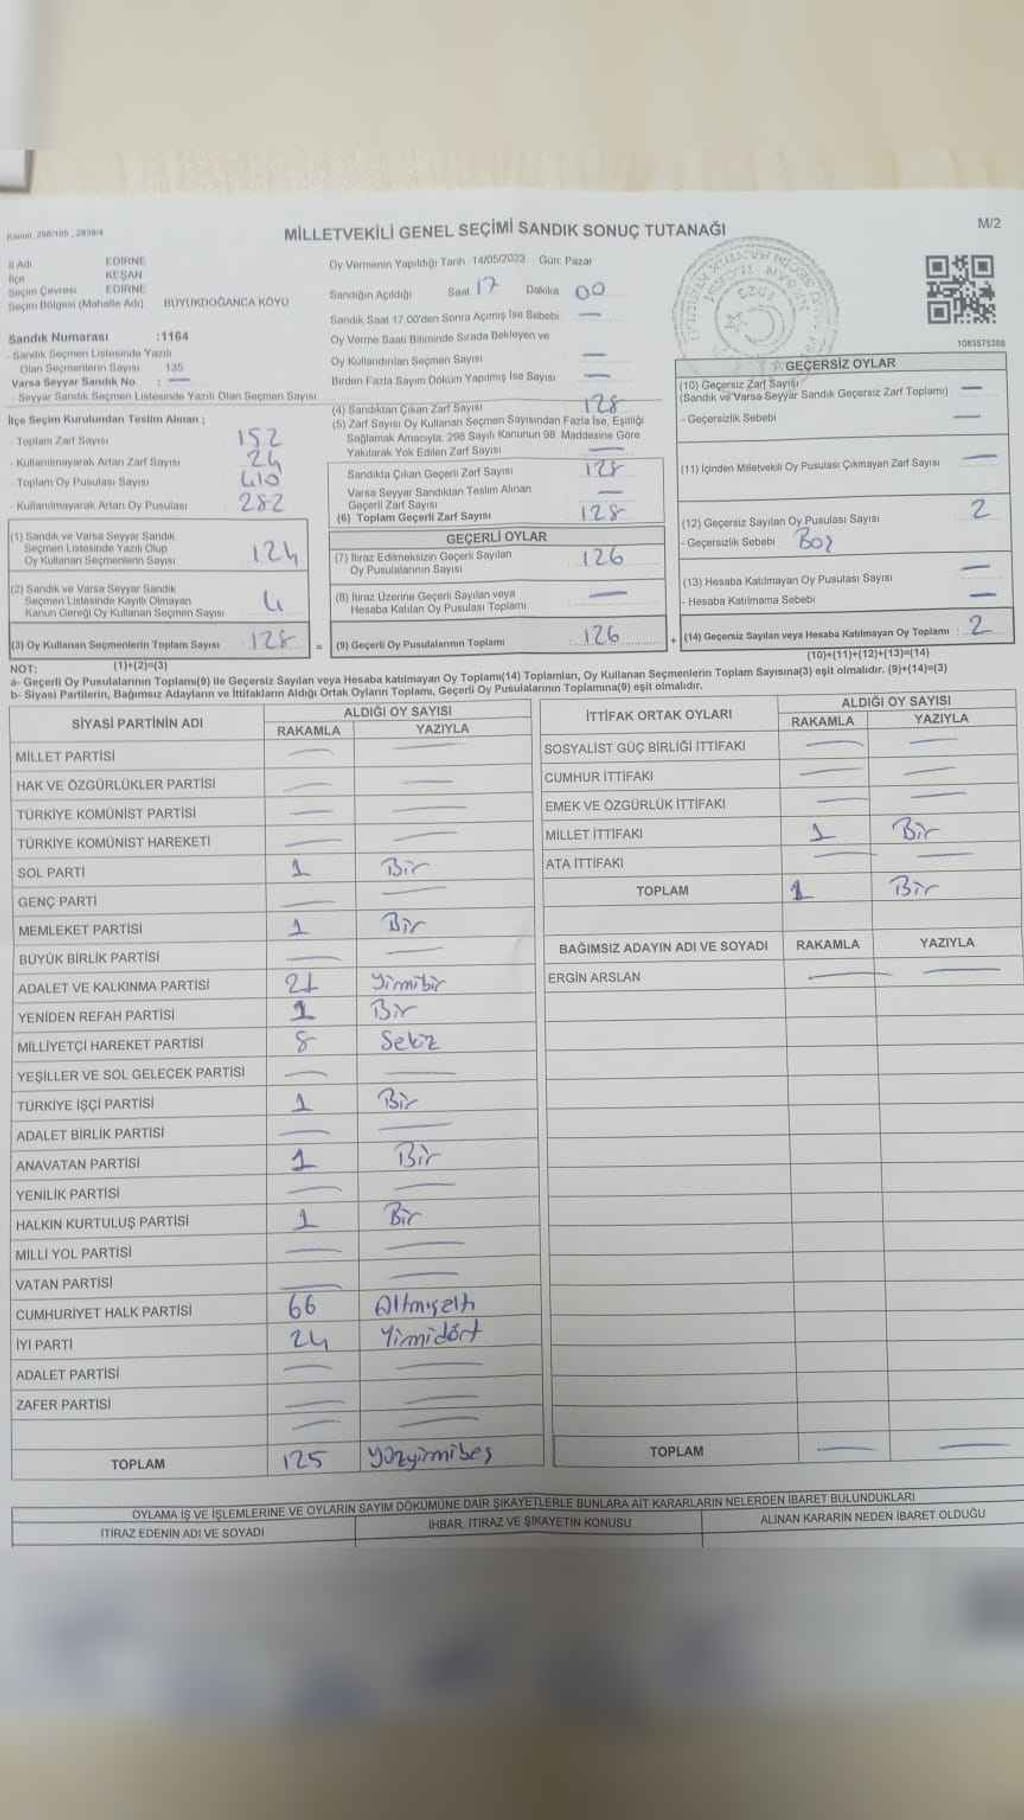 MİLLETVEKİLİ GENEL SEÇİMİ SANDIK SONUÇ TUTANAĞI
M/2
İl Adı EDİRNE
İlçe KEŞAN
Seçim Çevresi EDİRNE
Seçim Bölgesi (Mahalle Adı) BÜYÜKDOĞANCA KÖYÜ
Sandık Numarası :1164
- Sandık Seçmen Listesinde Yazılı
Olan Seçmenlerin Sayısı 135
Varsa Seyyar Sandık No : —
- Seyyar Sandık Seçmen Listesinde Yazılı Olan Seçmen Sayısı
Oy Vermenin Yapıldığı Tarih 14/05/2023 Gün: Pazar
Sandığın Açıldığı Saat 17 Dakika 00
Sandık Saat 17.00'den Sonra Açımış İse Sebebi —
Oy Verme Saati Bitiminde Sırada Bekleyen ve
Oy Kullandırılan Seçmen Sayısı —
Birden Fazla Sayım Döküm Yapılmış İse Sayısı —
1083575388
İlçe Seçim Kurulundan Teslim Alınan ;
- Toplam Zarf Sayısı 152
- Kullanılmayarak Artan Zarf Sayısı 24
- Toplam Oy Pusulası Sayısı 410
- Kullanılmayarak Artan Oy Pusulası 282
(1) Sandık ve Varsa Seyyar Sandık
Seçmen Listesinde Yazılı Olup
Oy Kullanan Seçmenlerin Sayısı 124
(2) Sandık ve Varsa Seyyar Sandık
Seçmen Listesinde Kayıtlı Olmayan
Kanun Gereği Oy Kullanan Seçmen Sayısı 4
(3) Oy Kullanan Seçmenlerin Toplam Sayısı 128 =
(1)+(2)=(3)
(4) Sandıktan Çıkan Zarf Sayısı 128
(5) Zarf Sayısı Oy Kullanan Seçmen Sayısından Fazla İse, Eşitliği
Sağlamak Amacıyla, 298 Sayılı Kanunun 98. Maddesine Göre
Yakılarak Yok Edilen Zarf Sayısı —
Sandıkta Çıkan Geçerli Zarf Sayısı 128
Varsa Seyyar Sandıktan Teslim Alınan
Geçerli Zarf Sayısı —
(6) Toplam Geçerli Zarf Sayısı 128
GEÇERLİ OYLAR
(7) İtiraz Edilmeksizin Geçerli Sayılan
Oy Pusulalarının Sayısı 126
(8) İtiraz Üzerine Geçerli Sayılan veya
Hesaba Katılan Oy Pusulası Toplamı —
(9) Geçerli Oy Pusulalarının Toplamı 126 +
GEÇERSİZ OYLAR
(10) Geçersiz Zarf Sayısı
(Sandık ve Varsa Seyyar Sandık Geçersiz Zarf Toplamı) —
- Geçersizlik Sebebi —
(11) İçinden Milletvekili Oy Pusulası Çıkmayan Zarf Sayısı —
(12) Geçersiz Sayılan Oy Pusulası Sayısı 2
- Geçersizlik Sebebi Boş
(13) Hesaba Katılmayan Oy Pusulası Sayısı —
- Hesaba Katılmama Sebebi —
(14) Geçersiz Sayılan veya Hesaba Katılmayan Oy Toplamı : 2
(10)+(11)+(12)+(13)=(14)
NOT:
a- Geçerli Oy Pusulalarının Toplamı(9) ile Geçersiz Sayılan veya Hesaba katılmayan Oy Toplamı(14) Toplamları, Oy Kullanan Seçmenlerin Toplam Sayısına(3) eşit olmalıdır. (9)+(14)=(3)
b- Siyasi Partilerin, Bağımsız Adayların ve İttifakların Aldığı Ortak Oyların Toplamı, Geçerli Oy Pusulalarının Toplamına(9) eşit olmalıdır.
SİYASİ PARTİNİN ADI
ALDIĞI OY SAYISI
RAKAMLA YAZIYLA
MİLLET PARTİSİ — —
HAK VE ÖZGÜRLÜKLER PARTİSİ — —
TÜRKİYE KOMÜNİST PARTİSİ — —
TÜRKİYE KOMÜNİST HAREKETİ — —
SOL PARTİ 1 Bir
GENÇ PARTİ — —
MEMLEKET PARTİSİ 1 Bir
BÜYÜK BİRLİK PARTİSİ — —
ADALET VE KALKINMA PARTİSİ 21 Yirmibir
YENİDEN REFAH PARTİSİ 1 Bir
MİLLİYETÇİ HAREKET PARTİSİ 8 Sekiz
YEŞİLLER VE SOL GELECEK PARTİSİ — —
TÜRKİYE İŞÇİ PARTİSİ 1 Bir
ADALET BİRLİK PARTİSİ — —
ANAVATAN PARTİSİ 1 Bir
YENİLİK PARTİSİ — —
HALKIN KURTULUŞ PARTİSİ 1 Bir
MİLLİ YOL PARTİSİ — —
VATAN PARTİSİ — —
CUMHURİYET HALK PARTİSİ 66 Altmışaltı
İYİ PARTİ 24 Yirmidört
ADALET PARTİSİ — —
ZAFER PARTİSİ — —
— —
TOPLAM 125 Yüzyirmibeş
İTTİFAK ORTAK OYLARI
ALDIĞI OY SAYISI
RAKAMLA YAZIYLA
SOSYALİST GÜÇ BİRLİĞİ İTTİFAKI — —
CUMHUR İTTİFAKI — —
EMEK VE ÖZGÜRLÜK İTTİFAKI — —
MİLLET İTTİFAKI 1 Bir
ATA İTTİFAKI — —
TOPLAM 1 Bir
BAĞIMSIZ ADAYIN ADI VE SOYADI RAKAMLA YAZIYLA
ERGİN ARSLAN — —
TOPLAM — —
OYLAMA İŞ VE İŞLEMLERİNE VE OYLARIN SAYIM DÖKÜMÜNE DAİR ŞİKAYETLERLE BUNLARA AİT KARARLARIN NELERDEN İBARET BULUNDUKLARI
İTİRAZ EDENİN ADI VE SOYADI İHBAR, İTİRAZ VE ŞİKAYETİN KONUSU ALINAN KARARIN NEDEN İBARET OLDUĞU